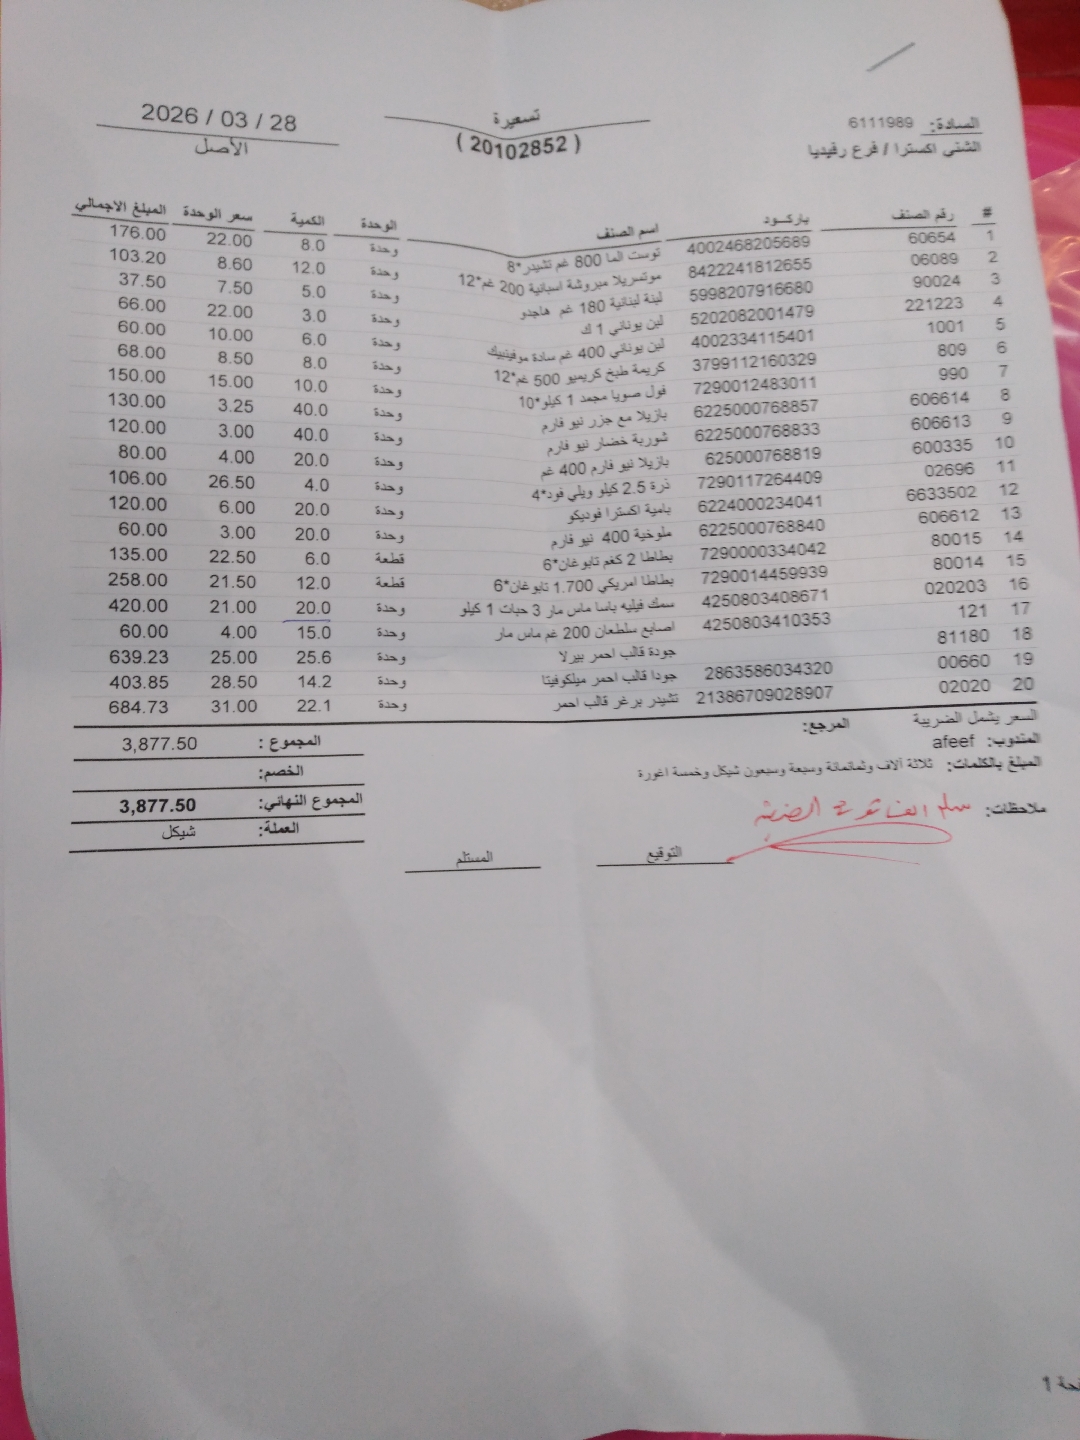 السادة: 6111989
الشني اكسترا / فرع رفيديا
تسعيرة
( 20102852 )
2026 / 03 / 28
الأصل
# رقم الصنف باركود اسم الصنف الوحدة الكمية سعر الوحدة المبلغ الاجمالي
1 60654 4002468205689 توست الما 800 غم تشيدر*8 وحدة 8.0 22.00 176.00
2 06089 8422241812655 موتسريلا مبروشة اسبانية 200 غم*12 وحدة 12.0 8.60 103.20
3 90024 5998207916680 لبنة لبنانية 180 غم هاجدو وحدة 5.0 7.50 37.50
4 221223 5202082001479 لبن يوناني 1 ك وحدة 3.0 22.00 66.00
5 1001 4002334115401 لبن يوناني 400 غم سادة موفينبيك وحدة 6.0 10.00 60.00
6 809 3799112160329 كريمة طبخ كريميو 500 غم*12 وحدة 8.0 8.50 68.00
7 990 7290012483011 فول صويا مجمد 1 كيلو*10 وحدة 10.0 15.00 150.00
8 606614 6225000768857 بازيلا مع جزر نيو فارم وحدة 40.0 3.25 130.00
9 606613 6225000768833 شوربة خضار نيو فارم وحدة 40.0 3.00 120.00
10 600335 625000768819 بازيلا نيو فارم 400 غم وحدة 20.0 4.00 80.00
11 02696 7290117264409 ذرة 2.5 كيلو ويلي فود*4 وحدة 4.0 26.50 106.00
12 6633502 6224000234041 بامية اكسترا فوديكو وحدة 20.0 6.00 120.00
13 606612 6225000768840 ملوخية 400 نيو فارم وحدة 20.0 3.00 60.00
14 80015 7290000334042 بطاطا 2 كغم تابوغان*6 قطعة 6.0 22.50 135.00
15 80014 7290014459939 بطاطا امريكي 1.700 تابوغان*6 قطعة 12.0 21.50 258.00
16 020203 4250803408671 سمك فيليه باسا ماس مار 3 حبات 1 كيلو وحدة 20.0 21.00 420.00
17 121 4250803410353 اصابع سلطعان 200 غم ماس مار وحدة 15.0 4.00 60.00
18 81180 جودة قالب احمر بيرلا وحدة 25.6 25.00 639.23
19 00660 2863586034320 جودا قالب احمر ميلكوفيتا وحدة 14.2 28.50 403.85
20 02020 21386709028907 تشيدر برغر قالب احمر وحدة 22.1 31.00 684.73
السعر يشمل الضريبة المرجع:
المندوب: afeef
المبلغ بالكلمات: ثلاثة آلاف وثمانمائة وسبعة وسبعون شيكل وخمسة اغورة
المجموع : 3,877.50
الخصم:
المجموع النهائي: 3,877.50
العملة: شيكل
ملاحظات:
التوقيع
المستلم